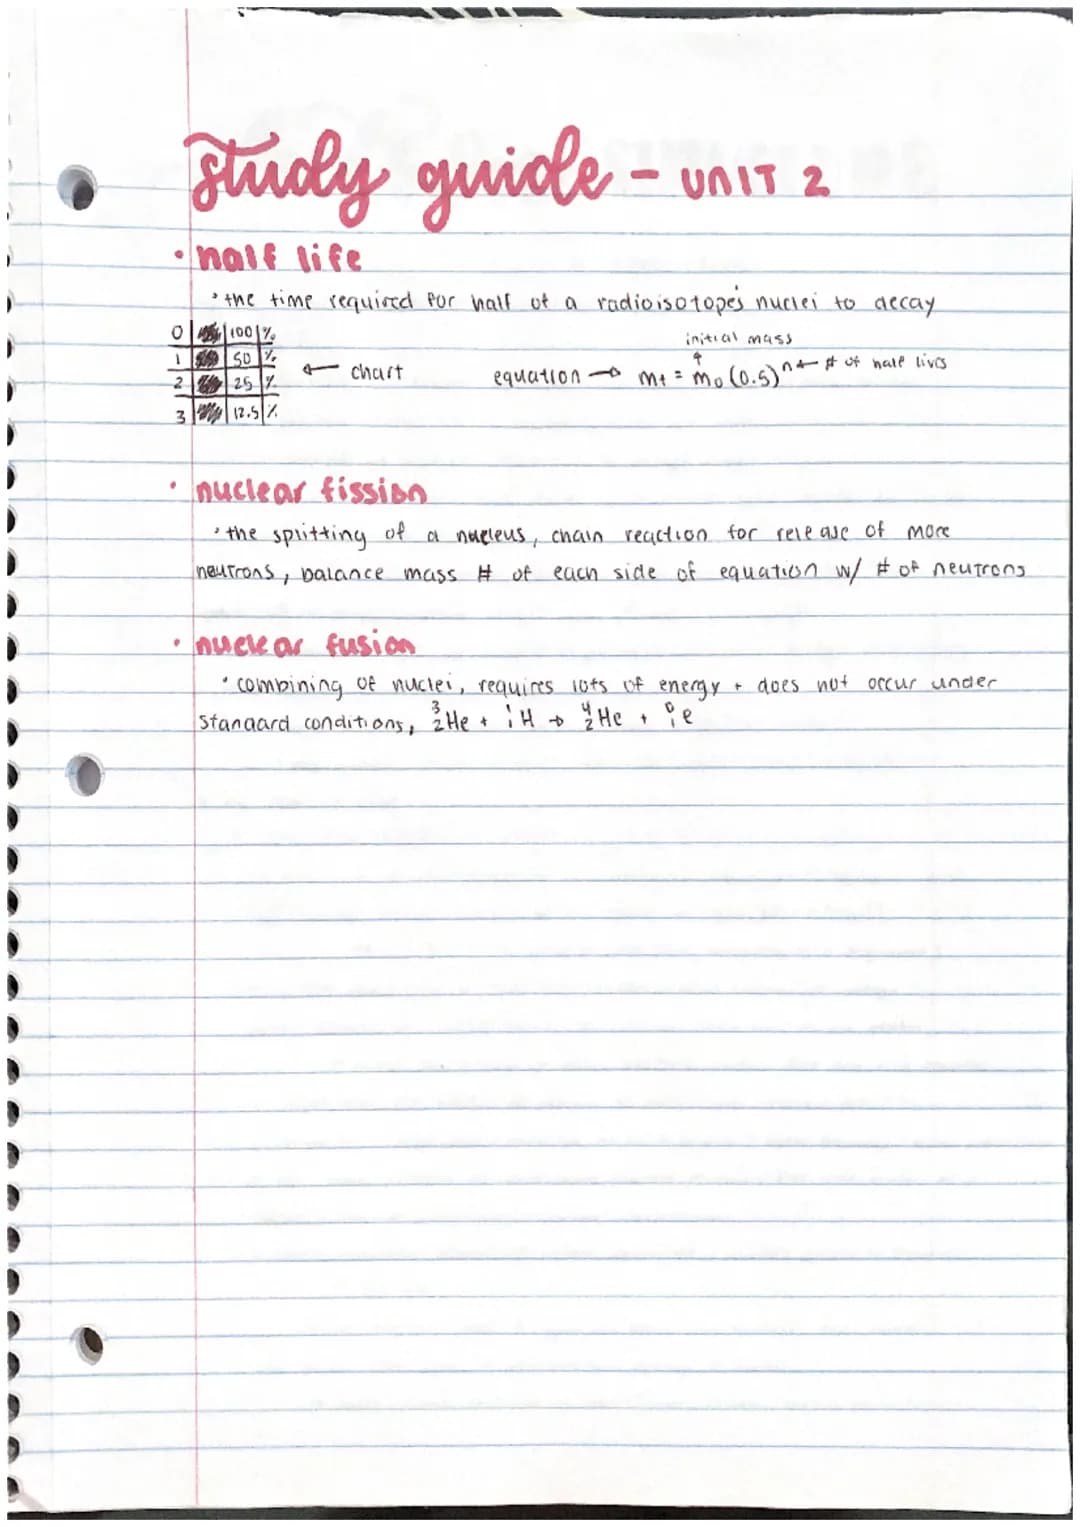 study guide - UNIT 2
• half life
• the time required for half of a radioisotope's nuclei to decay
0 100 %
1 50 %
2 25 %
3 12.5 %
← chart
initial mass
equation → mt = m₀ (0.5)ⁿ ← # of half lives
• nuclear fission
• the splitting of a nucleus, chain reaction for release of more
neutrons, balance mass # of each side of equation w/ # of neutrons
• nuclear fusion
• combining of nuclei, requires lots of energy + does not occur under
standard conditions, ³₂He + ¹₁H → ⁴₂He + ⁰₁e